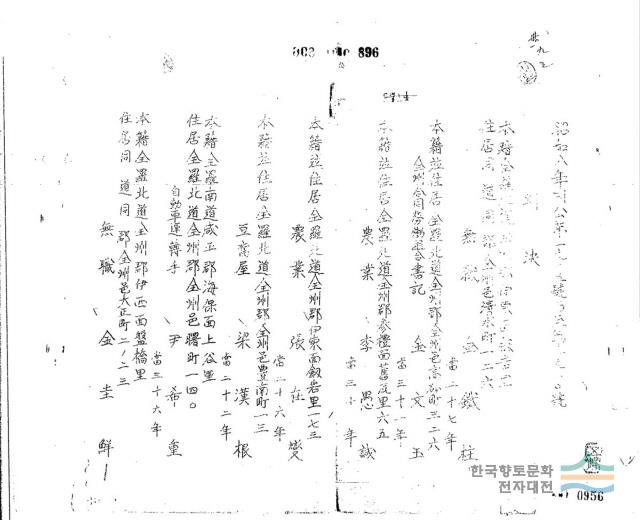 896
昭和八年刑公第
判決
本籍全羅北道
住居同道同郡全州邑清水町一二六
無職 金鐵柱
當二十七年
本籍並住居全羅北道全州郡全州邑高砂町三二六
全州合同労働組合書記
金文玉
當三十一年
本籍並住居全羅北道全州郡参禮面舊瓦里六五
農業 李愚誠
當三十年
本籍並住居全羅北道全州郡伊東面劔岩里一七三
農業 張在燮
當二十六年
本籍並住居全羅北道全州郡全州邑豊南町一三
豆腐屋 梁漢根
當二十二年
本籍全羅南道咸平郡海保面上谷里
住居全羅北道全州郡全州邑曙町一四〇
自動車運轉手 尹希重
當三十六年
本籍全羅北道全州郡伊西面盤橋里
住居同道同郡全州邑大正町二ノ二三
無職 金圭鮮
한국향토문화
전자대전
0956